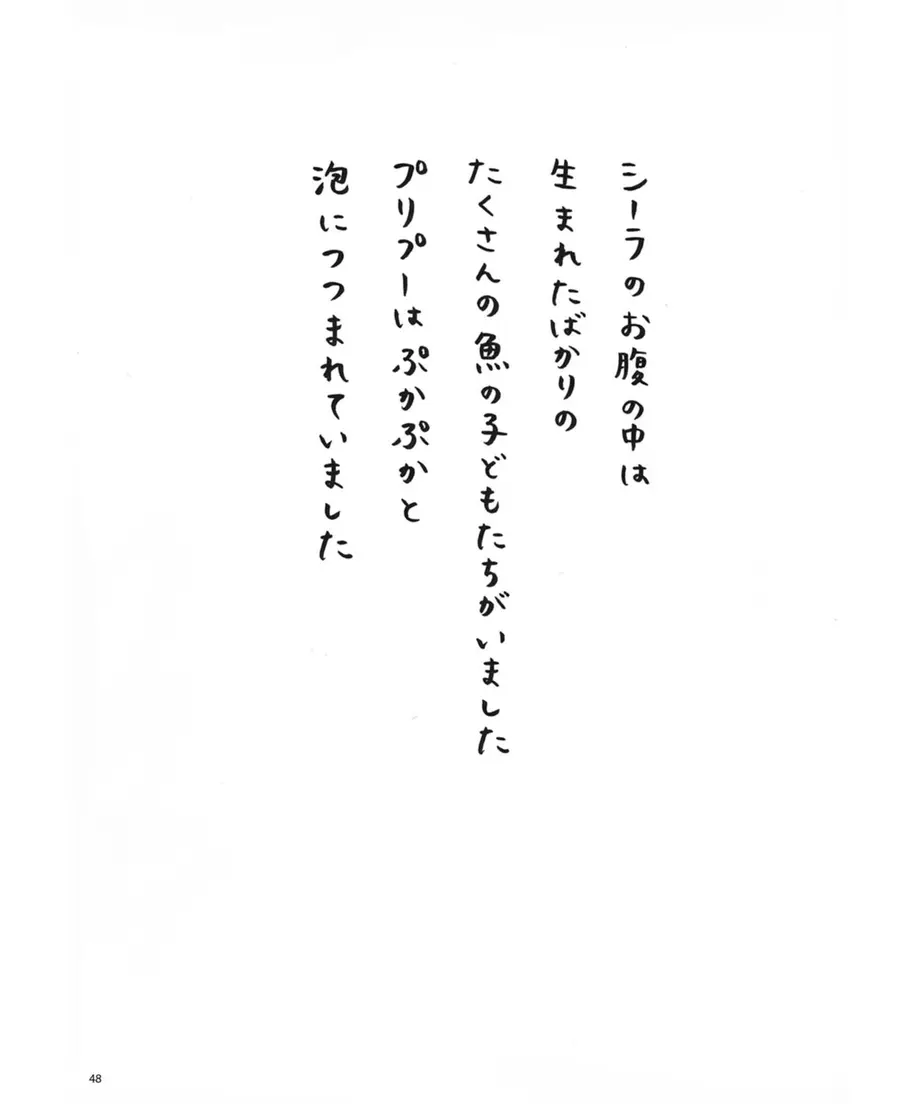 シーラのお腹の中は
生まれたばかりの
たくさんの魚の子どもたちがいました
プリプーはぷかぷかと
泡につつまれていました
48